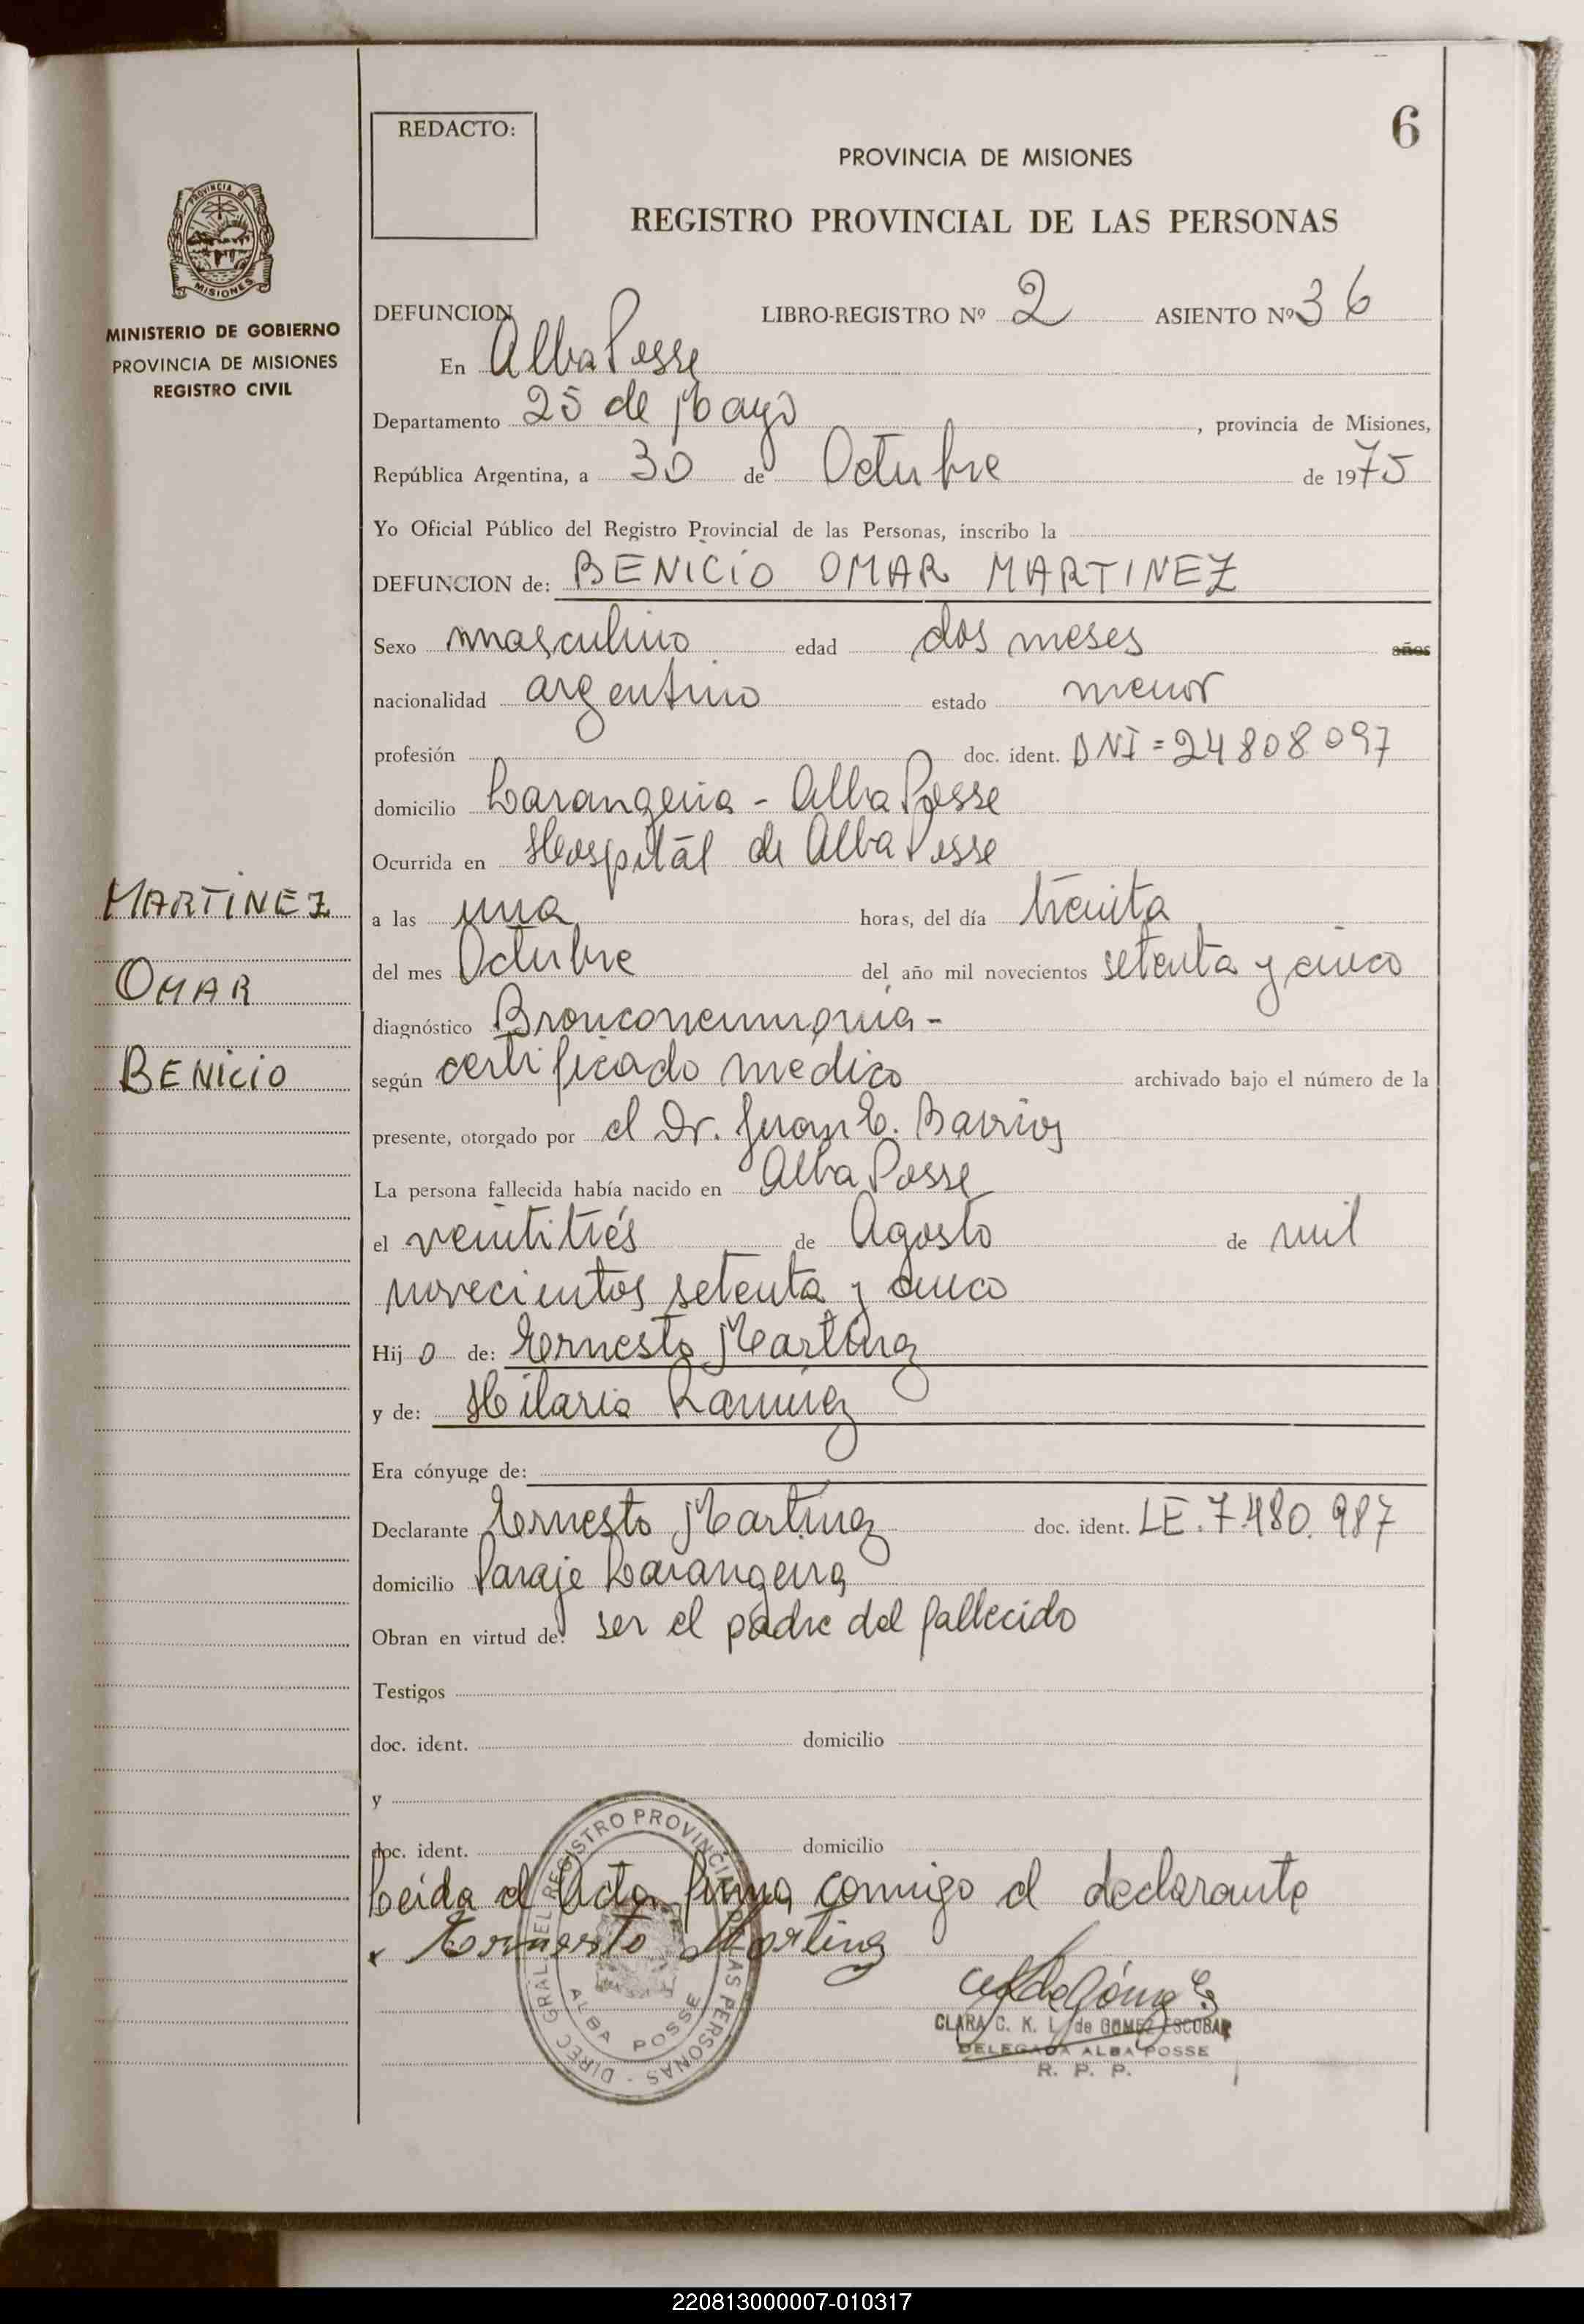 6
REDACTO:
PROVINCIA DE MISIONES
REGISTRO PROVINCIAL DE LAS PERSONAS
PROVINCIA DE
MISIONES
MINISTERIO DE GOBIERNO
PROVINCIA DE MISIONES
REGISTRO CIVIL
MARTINEZ
OMAR
BENICIO
DEFUNCION LIBRO-REGISTRO Nº 2 ASIENTO Nº 36
En Alba Posse
Departamento 25 de Mayo , provincia de Misiones,
República Argentina, a 30 de Octubre de 1975
Yo Oficial Público del Registro Provincial de las Personas, inscribo la
DEFUNCION de: BENICIO OMAR MARTINEZ
Sexo masculino edad dos meses años
nacionalidad argentino estado menor
profesión doc. ident. DNI = 24808097
domicilio Larangeira - Alba Posse
Ocurrida en Hospital de Alba Posse
a las una horas, del día treinta
del mes Octubre del año mil novecientos setenta y cinco
diagnóstico Bronconeumonia -
según certificado medico archivado bajo el número de la
presente, otorgado por el Dr. Juan E. Barrios
La persona fallecida había nacido en Alba Posse
el veintitrés de Agosto de mil
novecientos setenta y cinco
Hijo de: Ernesto Martinez
y de: Hilaria Ramirez
Era cónyuge de:
Declarante Ernesto Martinez doc. ident. LE. 7.480.987
domicilio Paraje Larangeira
Obran en virtud de: ser el padre del fallecido
Testigos
doc. ident. domicilio
y
doc. ident. domicilio
Leida el Acta firma conmigo el declarante
x Ernesto Martinez
DIREC GRAL DEL REGISTRO PROVINCIAL DE LAS PERSONAS -
ALBA POSSE
CLARA C. K. L. de GOMEZ ESCOBAR
DELEGADA ALBA POSSE
R. P. P.
220813000007-010317